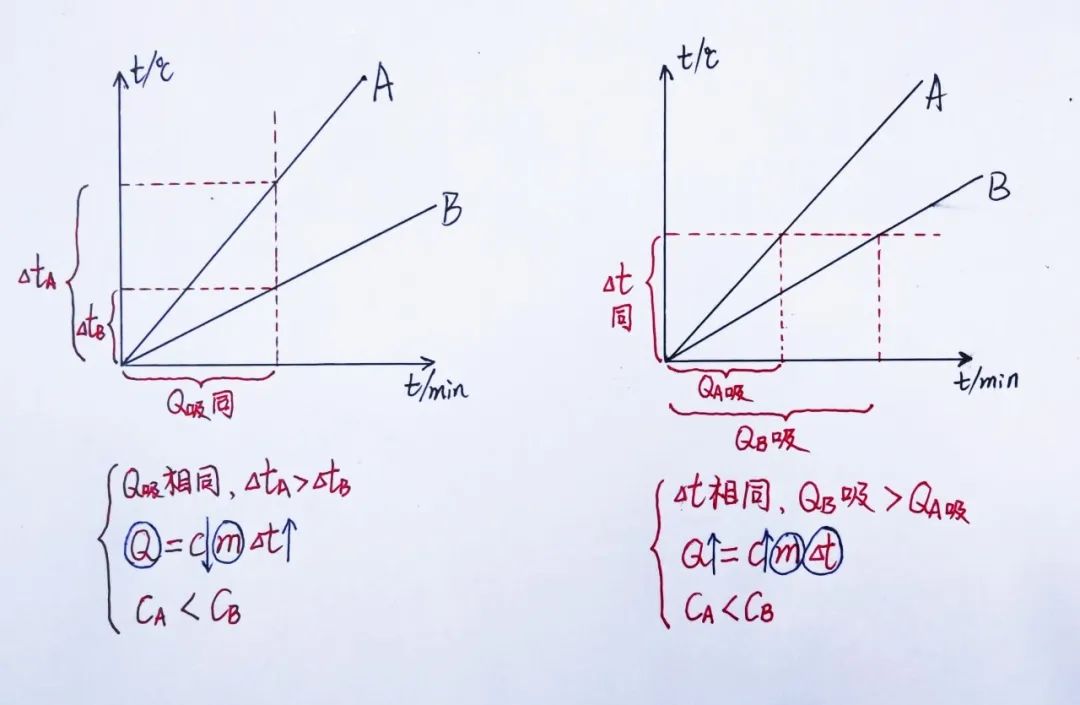 t/℃
A
B
ΔtA
ΔtB
t/min
Q吸同
Q吸相同，ΔtA>ΔtB
Q=c↓mΔt↑
CA<CB
t/℃
A
B
Δt
同
t/min
QA吸
QB吸
Δt相同，QB吸>QA吸
Q↑=c↑mΔt
CA<CB